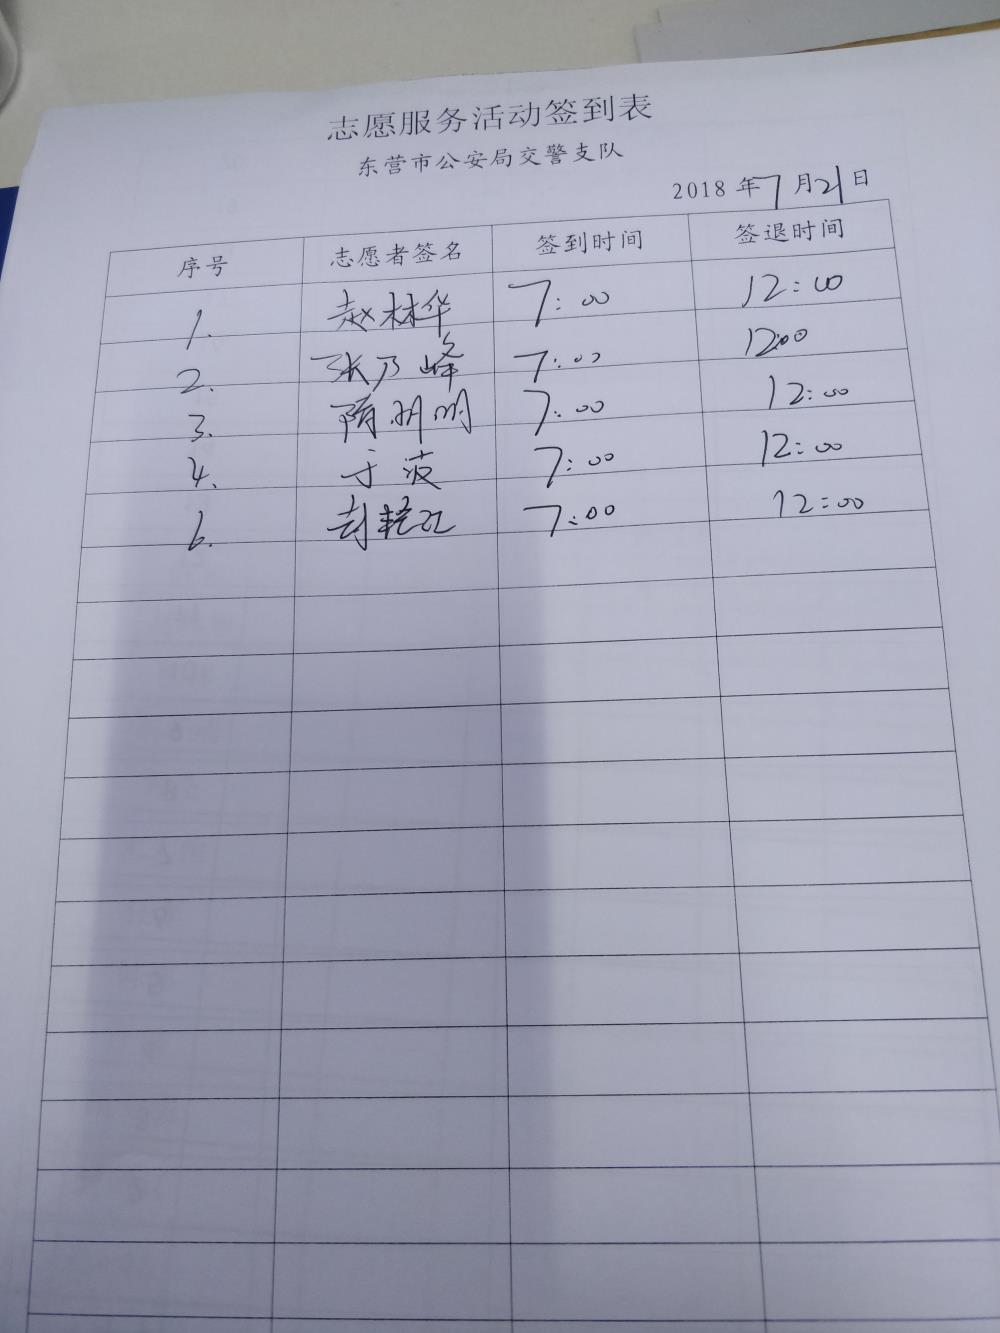 志愿服务活动签到表
东营市公安局交警支队
2018 年 7 月 21 日
序号 志愿者签名 签到时间 签退时间
1. 赵林华 7:00 12:00
2. 张乃峰 7:00 12:00
3. 隋明 7:00 12:00
4. 于波 7:00 12:00
6. 7:00 12:00